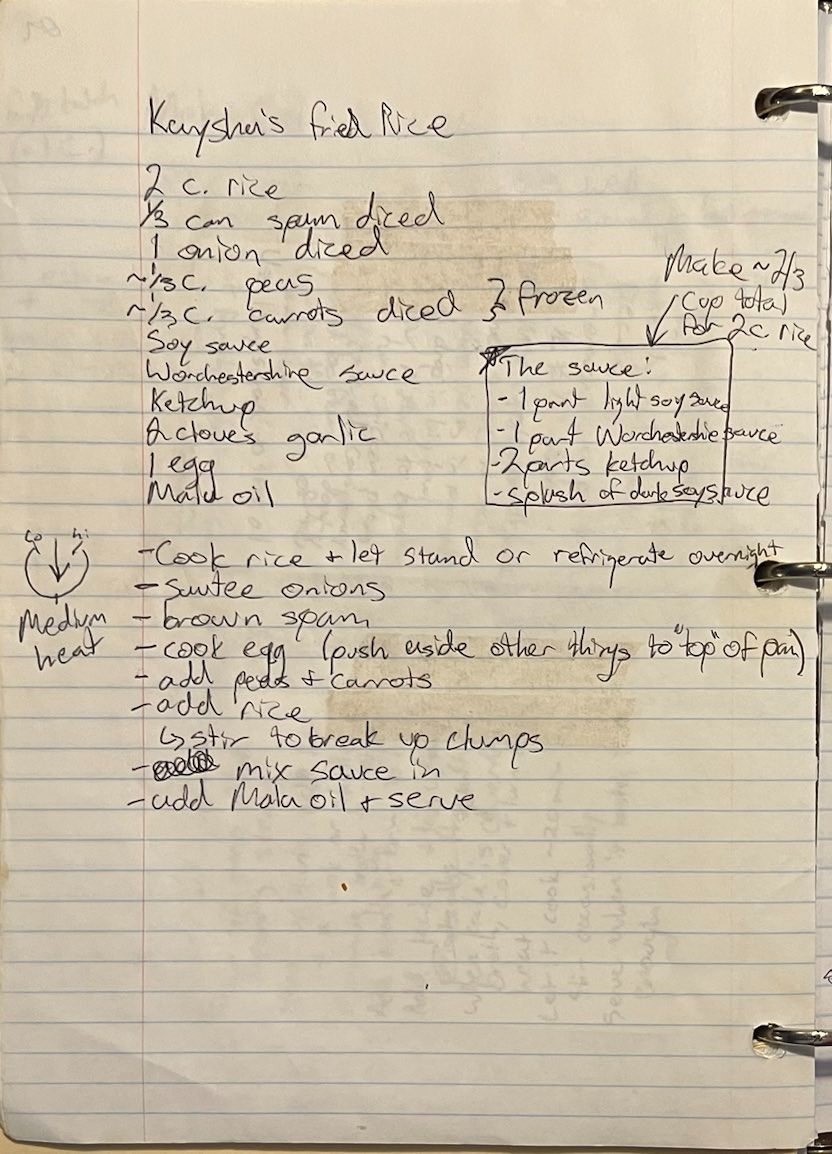 Kaysha's fried Rice
2 c. rice
1/3 can spam diced
1 onion diced
~1/3 c. peas
~1/3 c. carrots diced } frozen
Soy sauce
Worchestershire sauce
Ketchup
2 cloves garlic
1 egg
Mala oil
Make ~2/3
cup total
for 2c. rice
The sauce:
- 1 part light soy sauce
- 1 part Worchestershie sauce
- 2 parts ketchup
- splush of dark soy sauce
Lo Hi
Medium
heat
- Cook rice + let stand or refrigerate overnight
- sautee onions
- brown spam
- cook egg (push aside other things to "top" of pan)
- add peas + carrots
- add rice
↳ stir to break up clumps
- mix sauce in
- add Mala oil + serve